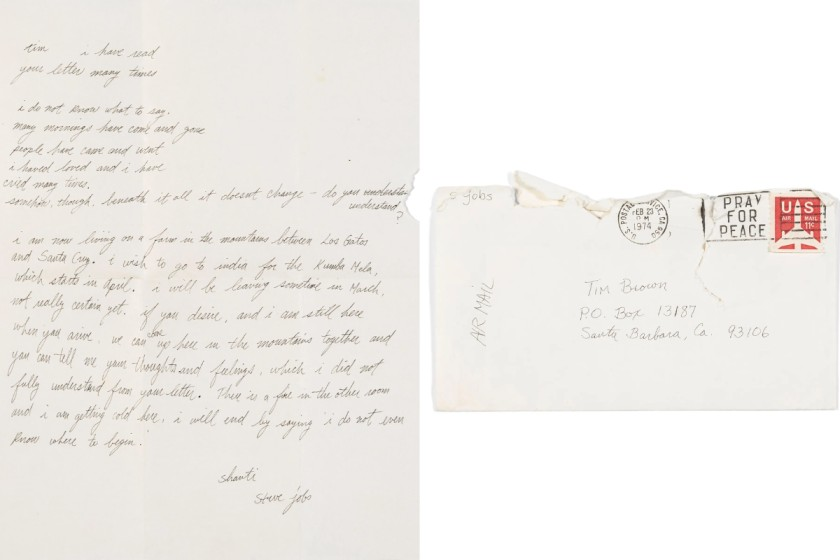 tim i have read
your letter many times
i do not know what to say.
many mornings have come and gone
people have came and went
i haved loved and i have
cried many times.
somehow, though, beneath it all it doesnt change - do you understa
understand?
i am now living on a farm in the mountains between Los Gatos
and Santa Cruz. i wish to go to india for the Kumba Mela,
which starts in april. i will be leaving sometime in March,
not really certain yet. if you desire, and i am still here
when you arive, we can be up here in the mountains together and
you can tell me your thoughts and feelings, which i did not
fully understand from your letter. There is a fire in the other room
and i am getting cold here. i will end by saying i do not even
know where to begin.
shanti
steve jobs
s jobs
AIR MAIL
U.S. POSTAL SERVICE, CA
FEB 23
PM
1974
PRAY
FOR
PEACE
USA
AIR MAIL
11c
Tim Brown
P.O. Box 13187
Santa Barbara, Ca. 93106